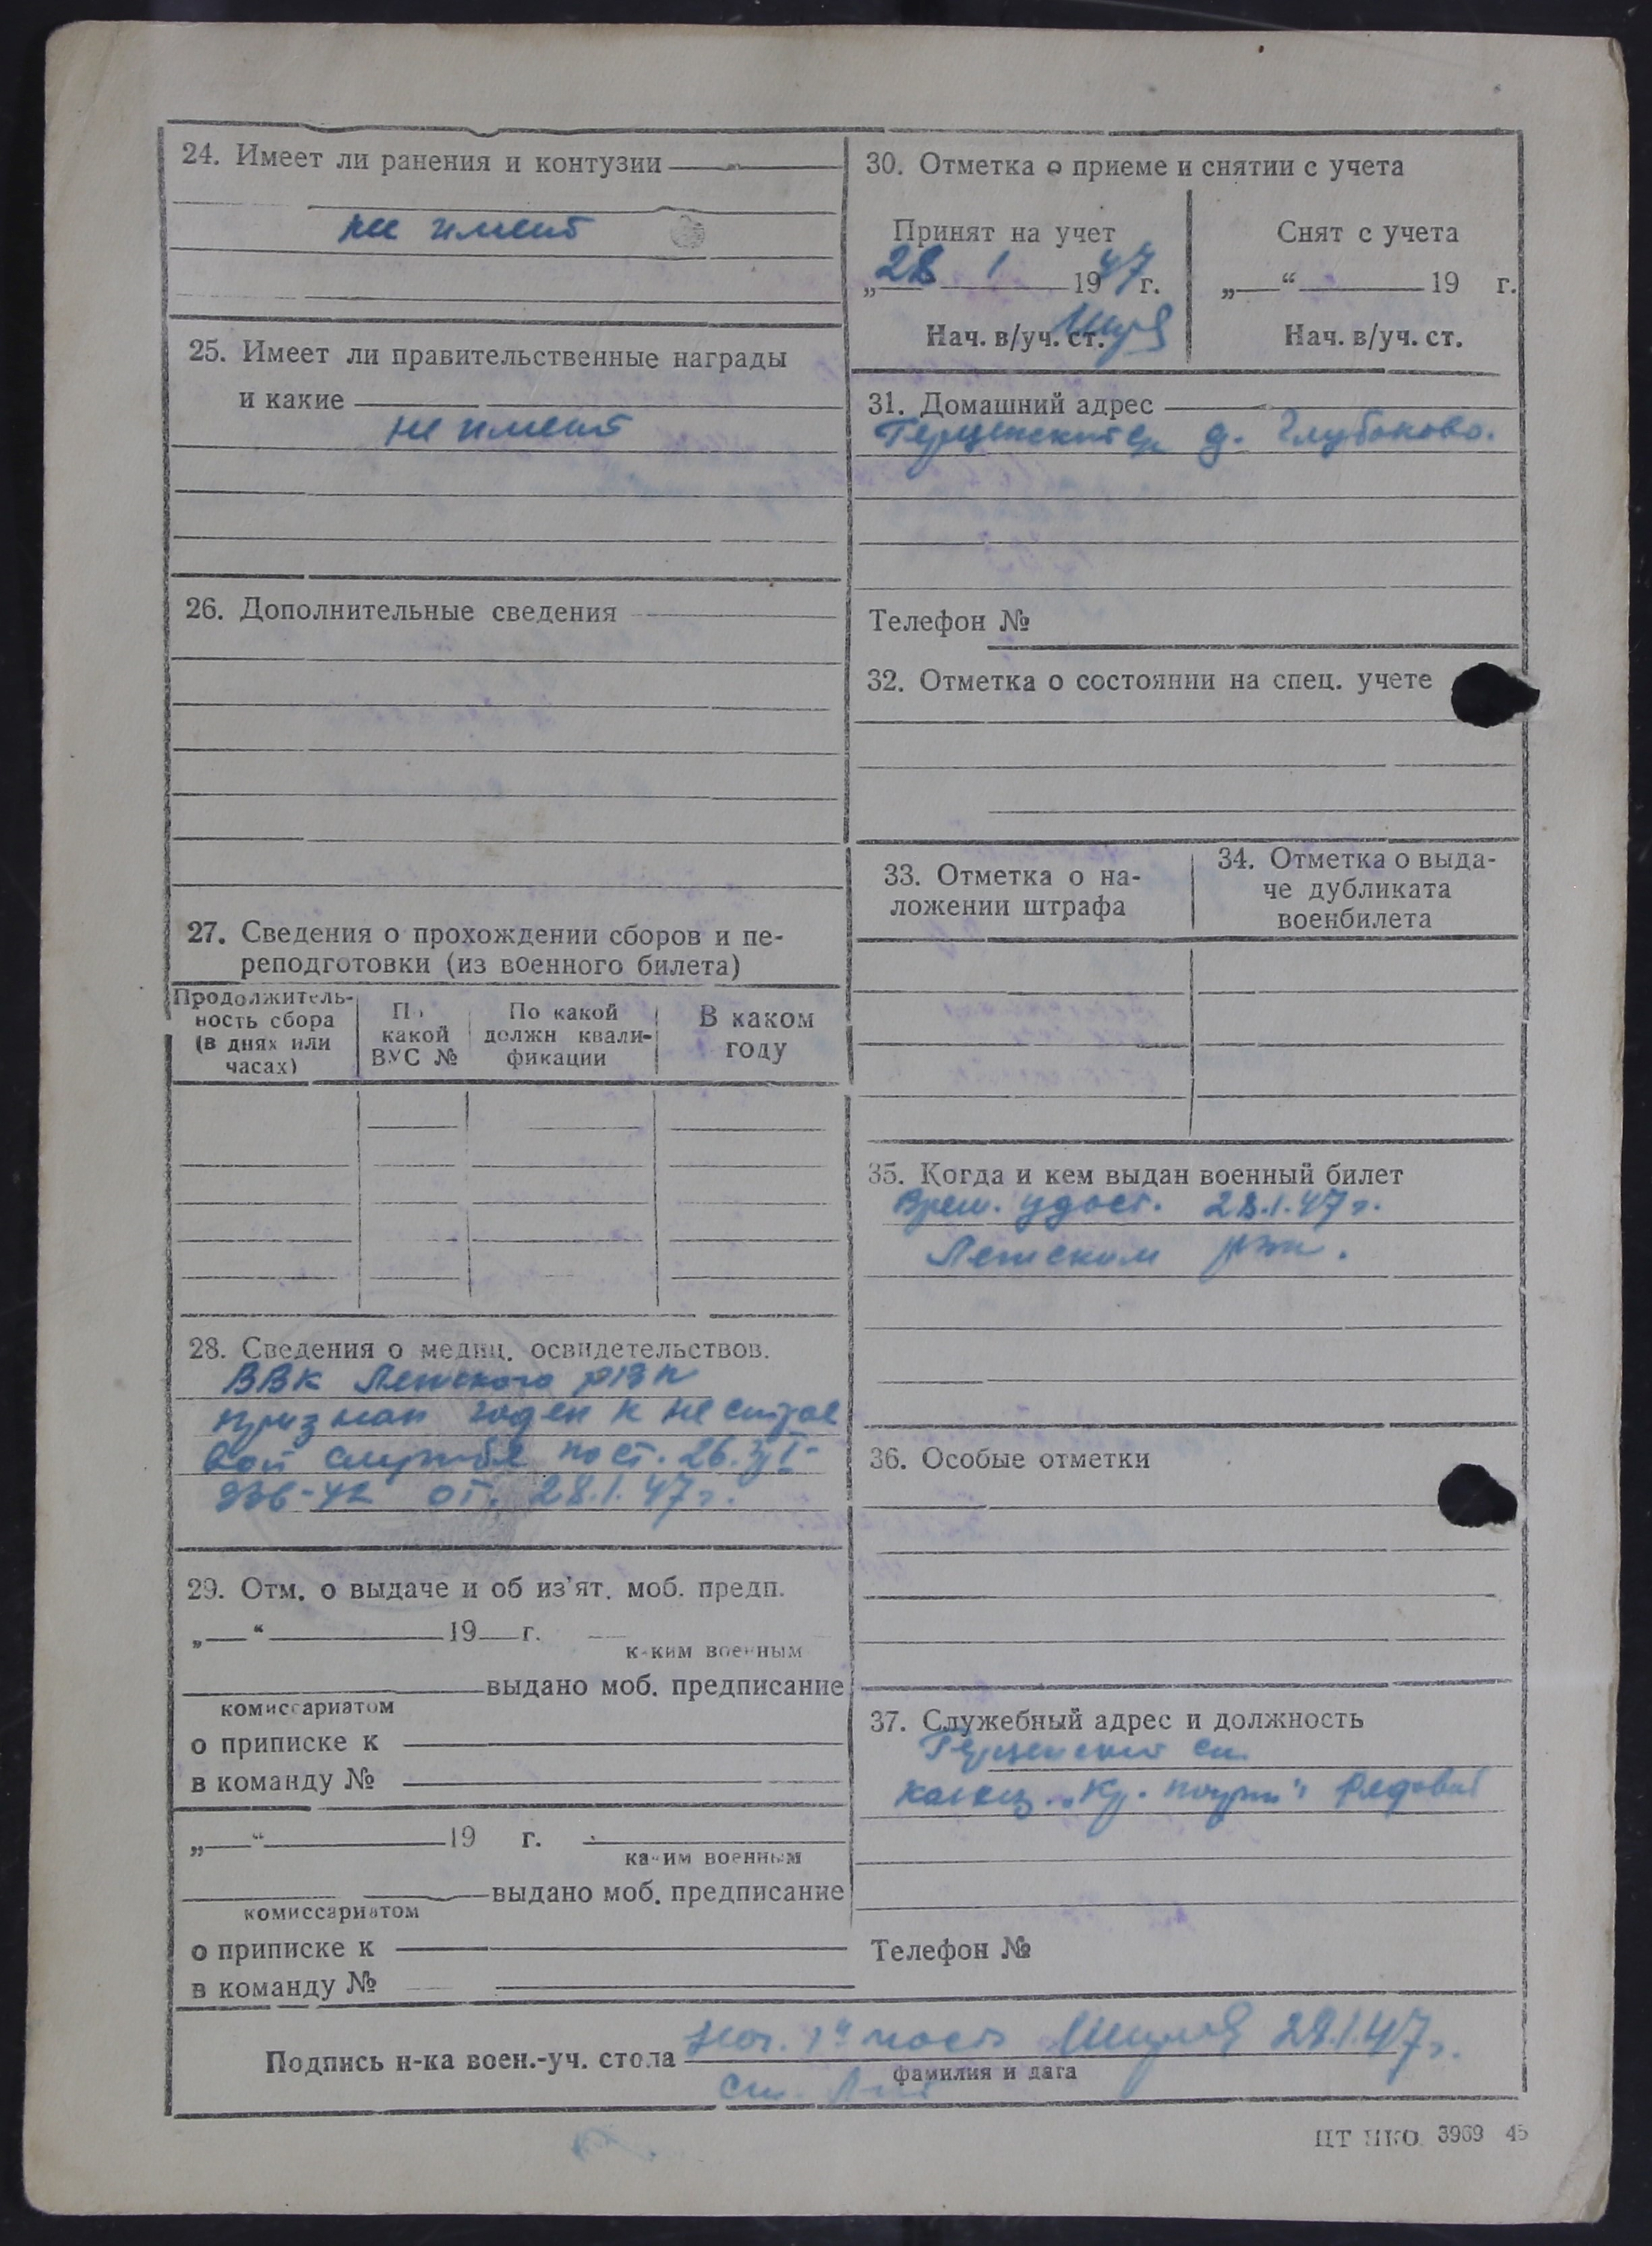 24. Имеет ли ранения и контузии
не имеет
25. Имеет ли правительственные награды
и какие
не имеет
26. Дополнительные сведения
27. Сведения о прохождении сборов и пе-
реподготовки (из военного билета)
Продолжитель-
ность сбора
(в днях или
часах)
По
какой
ВУС №
По какой
должн квали-
фикации
В каком
году
28. Сведения о медиц. освидетельствов.
ВВК Летского РВК
признан годен к нестрое
вой службе по ст. 26. гр I-
336-42 от. 28.1.47 г.
29. Отм. о выдаче и об из'ят. моб. предп.
„ “ 19 г.
каким военным
выдано моб. предписание
комиссариатом
о приписке к
в команду №
„ “ 19 г.
каким военным
выдано моб. предписание
комиссариатом
о приписке к
в команду №
30. Отметка о приеме и снятии с учета
Принят на учет
„28 1 1947 г.
Нач. в/уч. ст.
Снят с учета
„ “ 19 г.
Нач. в/уч. ст.
31. Домашний адрес
д. Глубоково.
Телефон №
32. Отметка о состоянии на спец. учете
33. Отметка о на-
ложении штрафа
34. Отметка о выда-
че дубликата
военбилета
35. Когда и кем выдан военный билет
Врем. удост. 28.1.47 г.
Летским РВК.
36. Особые отметки
37. Служебный адрес и должность
колхоз „Кр. рядовой
Телефон №
Подпись н-ка воен.-уч. стола Нач. 1й части 28.1.47 г.
фамилия и дата
ст. Л-т
ЦТ НКО 3969 45